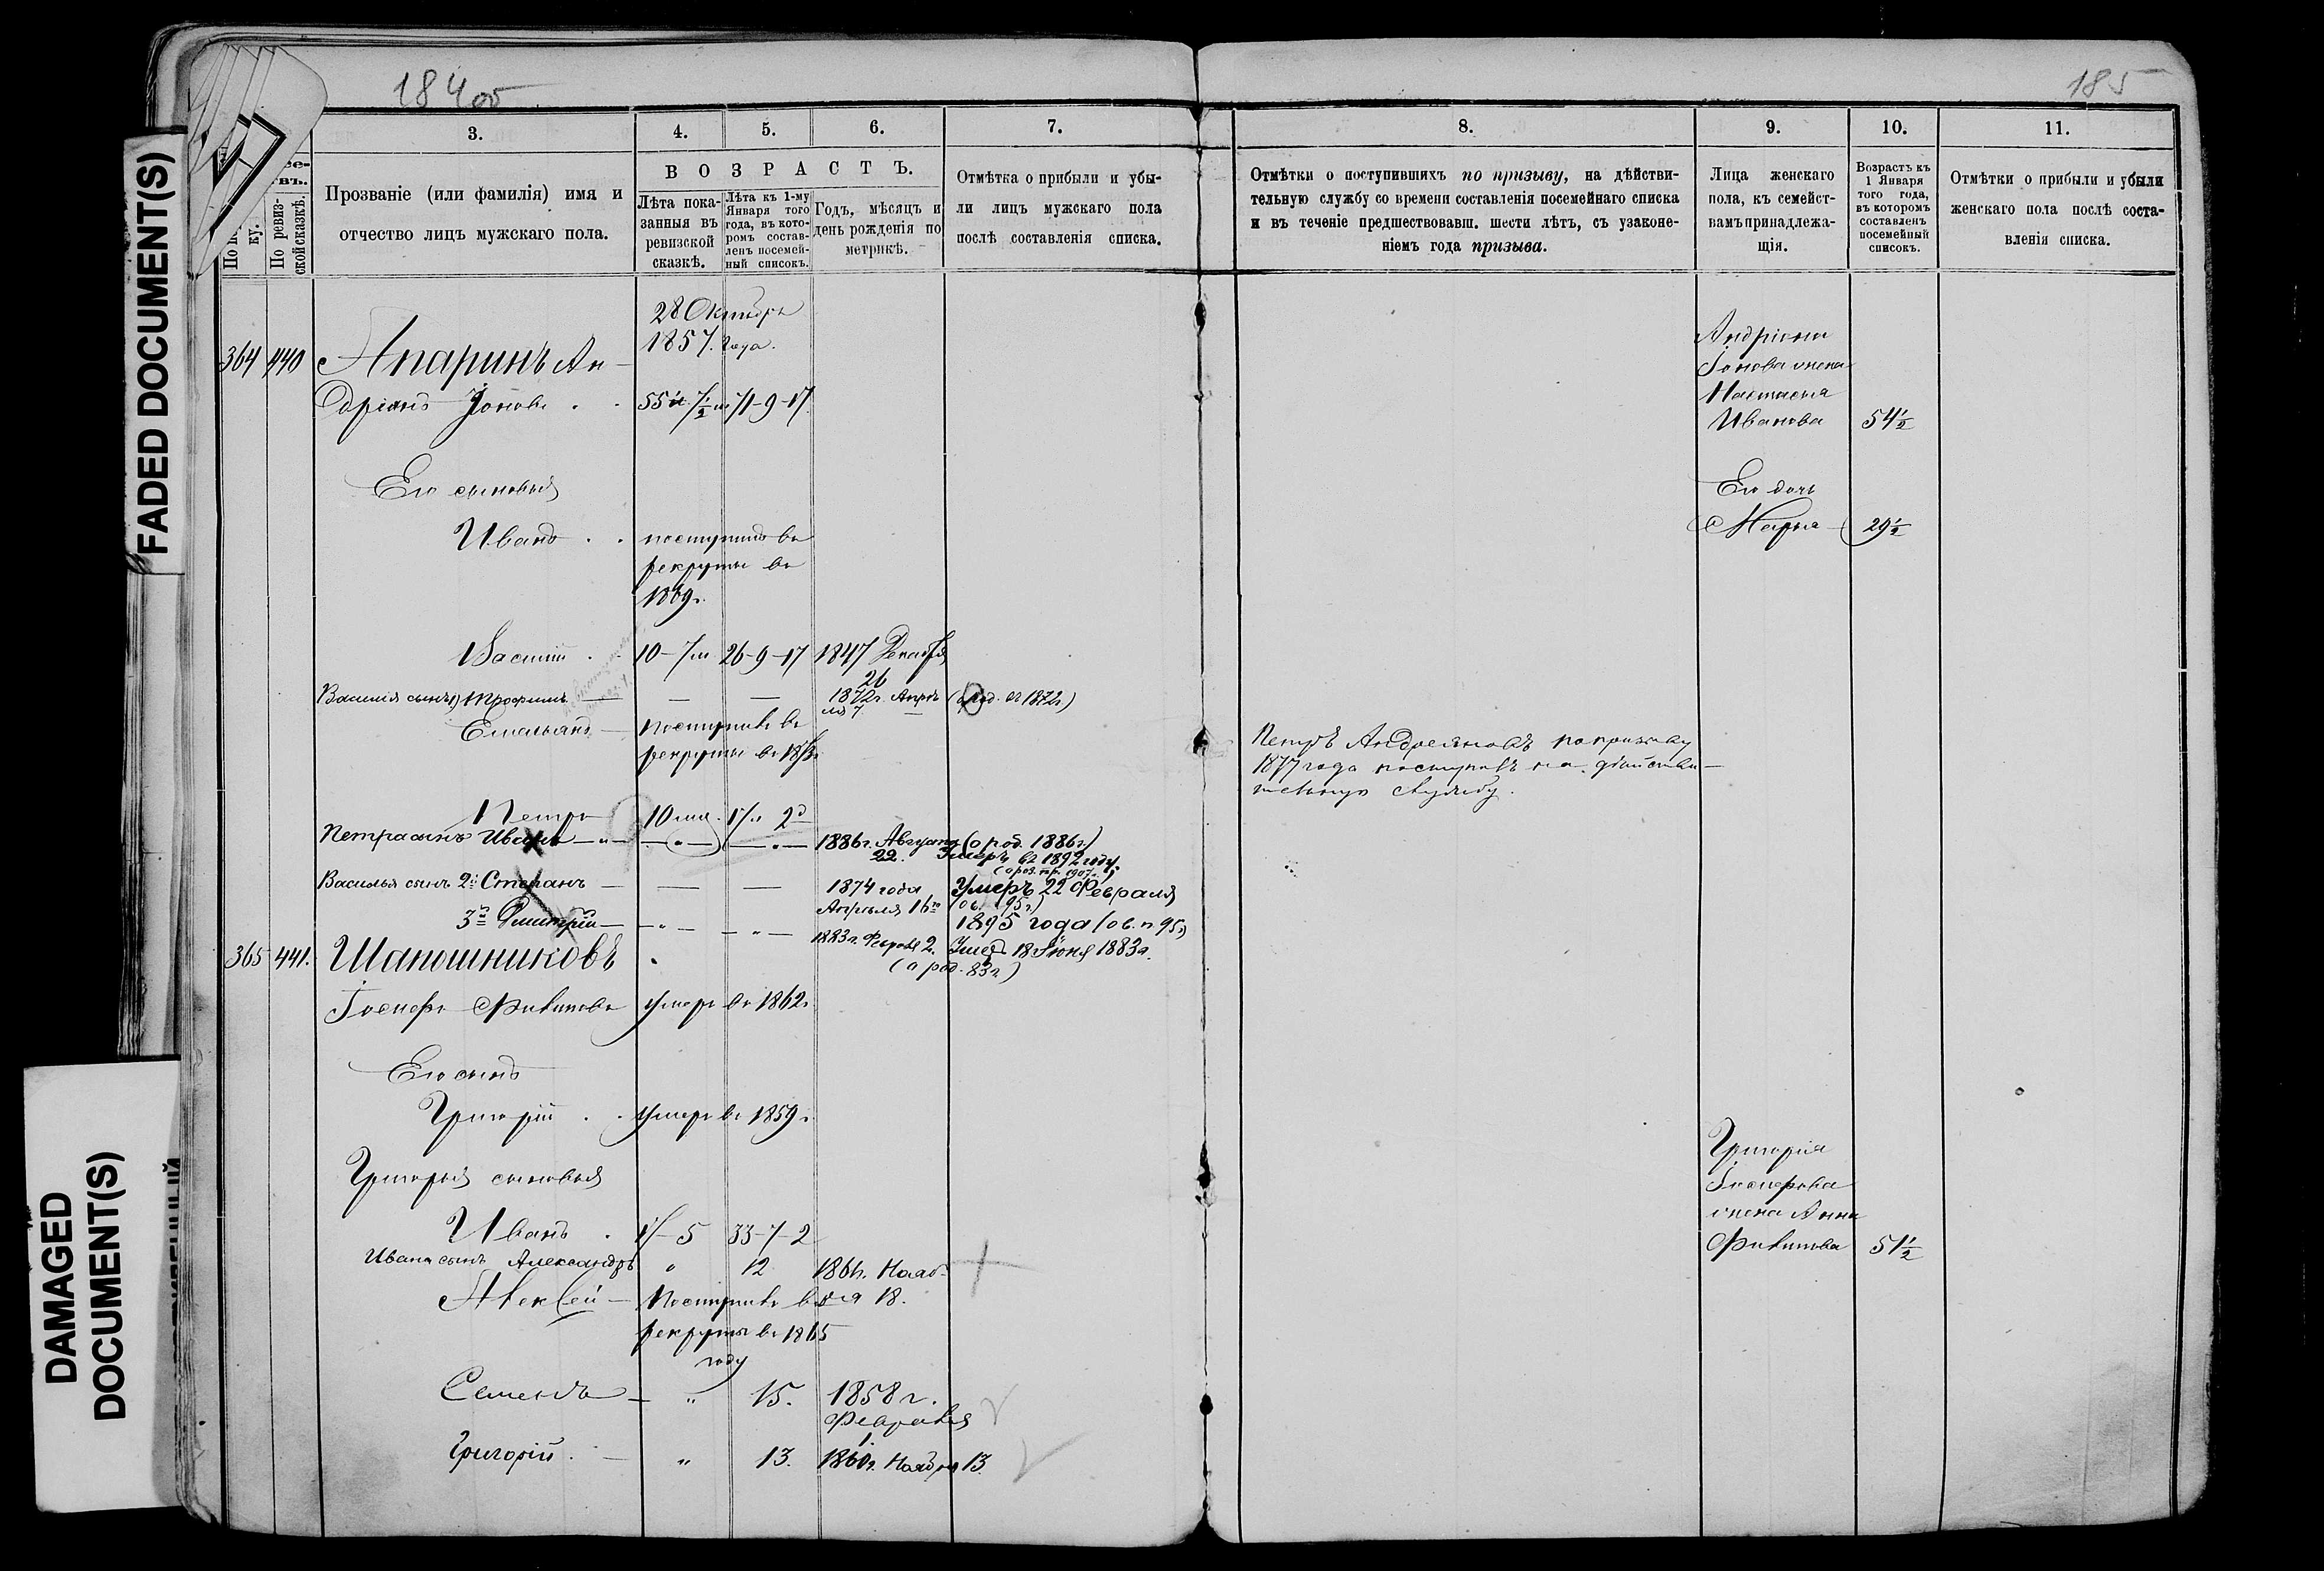 FADED DOCUMENT(S)
DAMAGED
DOCUMENT(S)
184 об
185
3.
4.
5.
6.
7.
8.
9.
10.
11.
По ревиз-
ской сказкѣ.
Прозваніе (или фамилія) имя и
отчество лицъ мужскаго пола.
ВОЗРАСТЪ.
Лѣта пока-
занныя въ
ревизской
сказкѣ.
Лѣта къ 1-му
Января того
года, въ кото-
ромъ состав-
ленъ посемей-
ный списокъ.
Годъ, мѣсяцъ и
день рожденія по
метрикѣ.
Отмѣтка о прибыли и убы-
ли лицъ мужскаго пола
послѣ составленія списка.
Отмѣтки о поступившихъ по призыву, на дѣйстви-
тельную службу со времени составленія посемейнаго списка
и въ теченіе предшествовавш. шести лѣтъ, съ узаконе-
ніемъ года призыва.
Лица женскаго
пола, къ семейст-
вамъ принадлежа-
щія.
Возрастъ къ
1 Января
того года,
въ которомъ
составленъ
посемейный
списокъ.
Отмѣтки о прибыли и убыли
женскаго пола послѣ соста-
вленія списка.
28 Октября
1857 года.
364 440 Апаринъ Ан-
дріанъ Іоновъ 55 71-9-17
Андріана
Іонова жена
Настасья
Иванова 54½
Его сыновья
Иванъ поступилъ въ
рекруты въ
1869г.
Его дочь
Марья 29½
Василій 10-7м 26-9-17 1847 Декабря
26
Василія сынъ 1) Трофимъ — — 1872г. Апрѣ- (о род. въ 1872г)
ля 7.
Емельянъ — Поступилъ въ
рекруты въ
Петръ Андреяновъ по призыву
1877 года поступилъ на дѣйстви-
тельную службу.
Петръ 10 мц. 17
Петра сынъ Иванъ 1886г. Августа (о род. 1886г)
22. Умеръ въ 1892 году
Василья сынъ 2й Степанъ — — — 1874 года Умеръ 22 Февраля
Апрѣля 16го
1895 года (ов. п. 95г)
3й Дмитрій 1883г. Февраля 2. Умеръ 18 Іюня 1883г.
(о род. 83г.)
365 441. Шапошниковъ
Іосифъ Филиповъ умеръ въ 1862г
Его сынъ
Григорій умеръ въ 1859г
Григорья сыновья
Григорія
Іосифова
жена Анна
Филипова 51½
Иванъ 33-7-2
Ивана сынъ Александръ " 12 1861г. Нояб-
ря 18.
Алексѣй — Поступилъ въ
рекруты въ 1865
году
Семенъ — " 15. 1858 г.
Февраля
1.
Григорій — " 13. 1860г. Ноября 13.